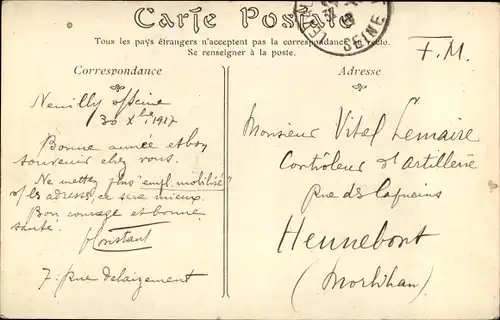 Carte Postale
Tous les pays étrangers n'acceptent pas la correspondance au recto.
Se renseigner à la poste.
F.M.
SEINE
Correspondance
Neuilly s/Seine
30 Xbre 1917
Bonne année et bon
souvenir chez vous.
Ne mettez plus "empl. mobilisé"
s/ les adresses, ce sera mieux.
Bon courage et bonne
santé.
Constant
7, rue Delaizement
Adresse
Monsieur Vital Lemaire
Contrôleur d'artillerie
rue des Capucins
Hennebont
(Morbihan)